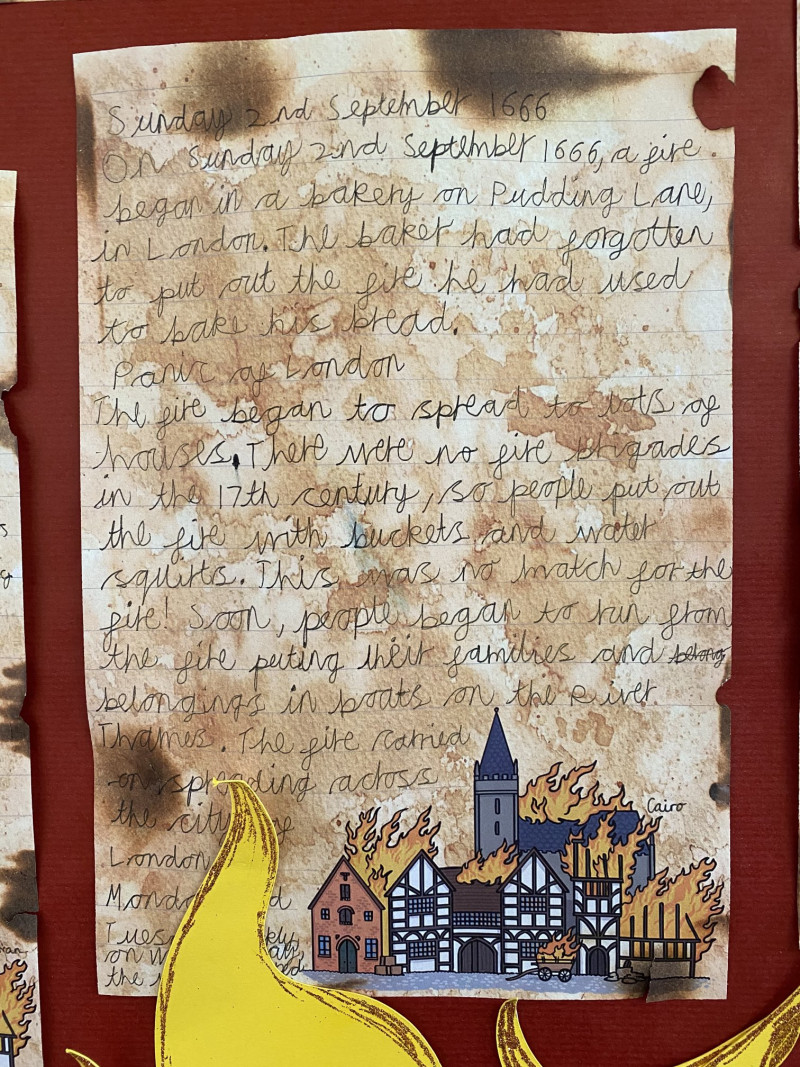 Sunday 2nd September 1666
On Sunday 2nd September 1666, a fire
began in a bakery on Pudding Lane,
in London. The baker had forgotten
to put out the fire he had used
to bake his bread.
Panic of London
The fire began to spread to lots of
houses. There were no fire brigades
in the 17th century, so people put out
the fire with buckets and water
squirts. This was no match for the
fire! Soon, people began to run from
the fire puting their families and belong
belongings in boats on the River
Thames. The fire carried
on spreading across
the city
London
Cairo